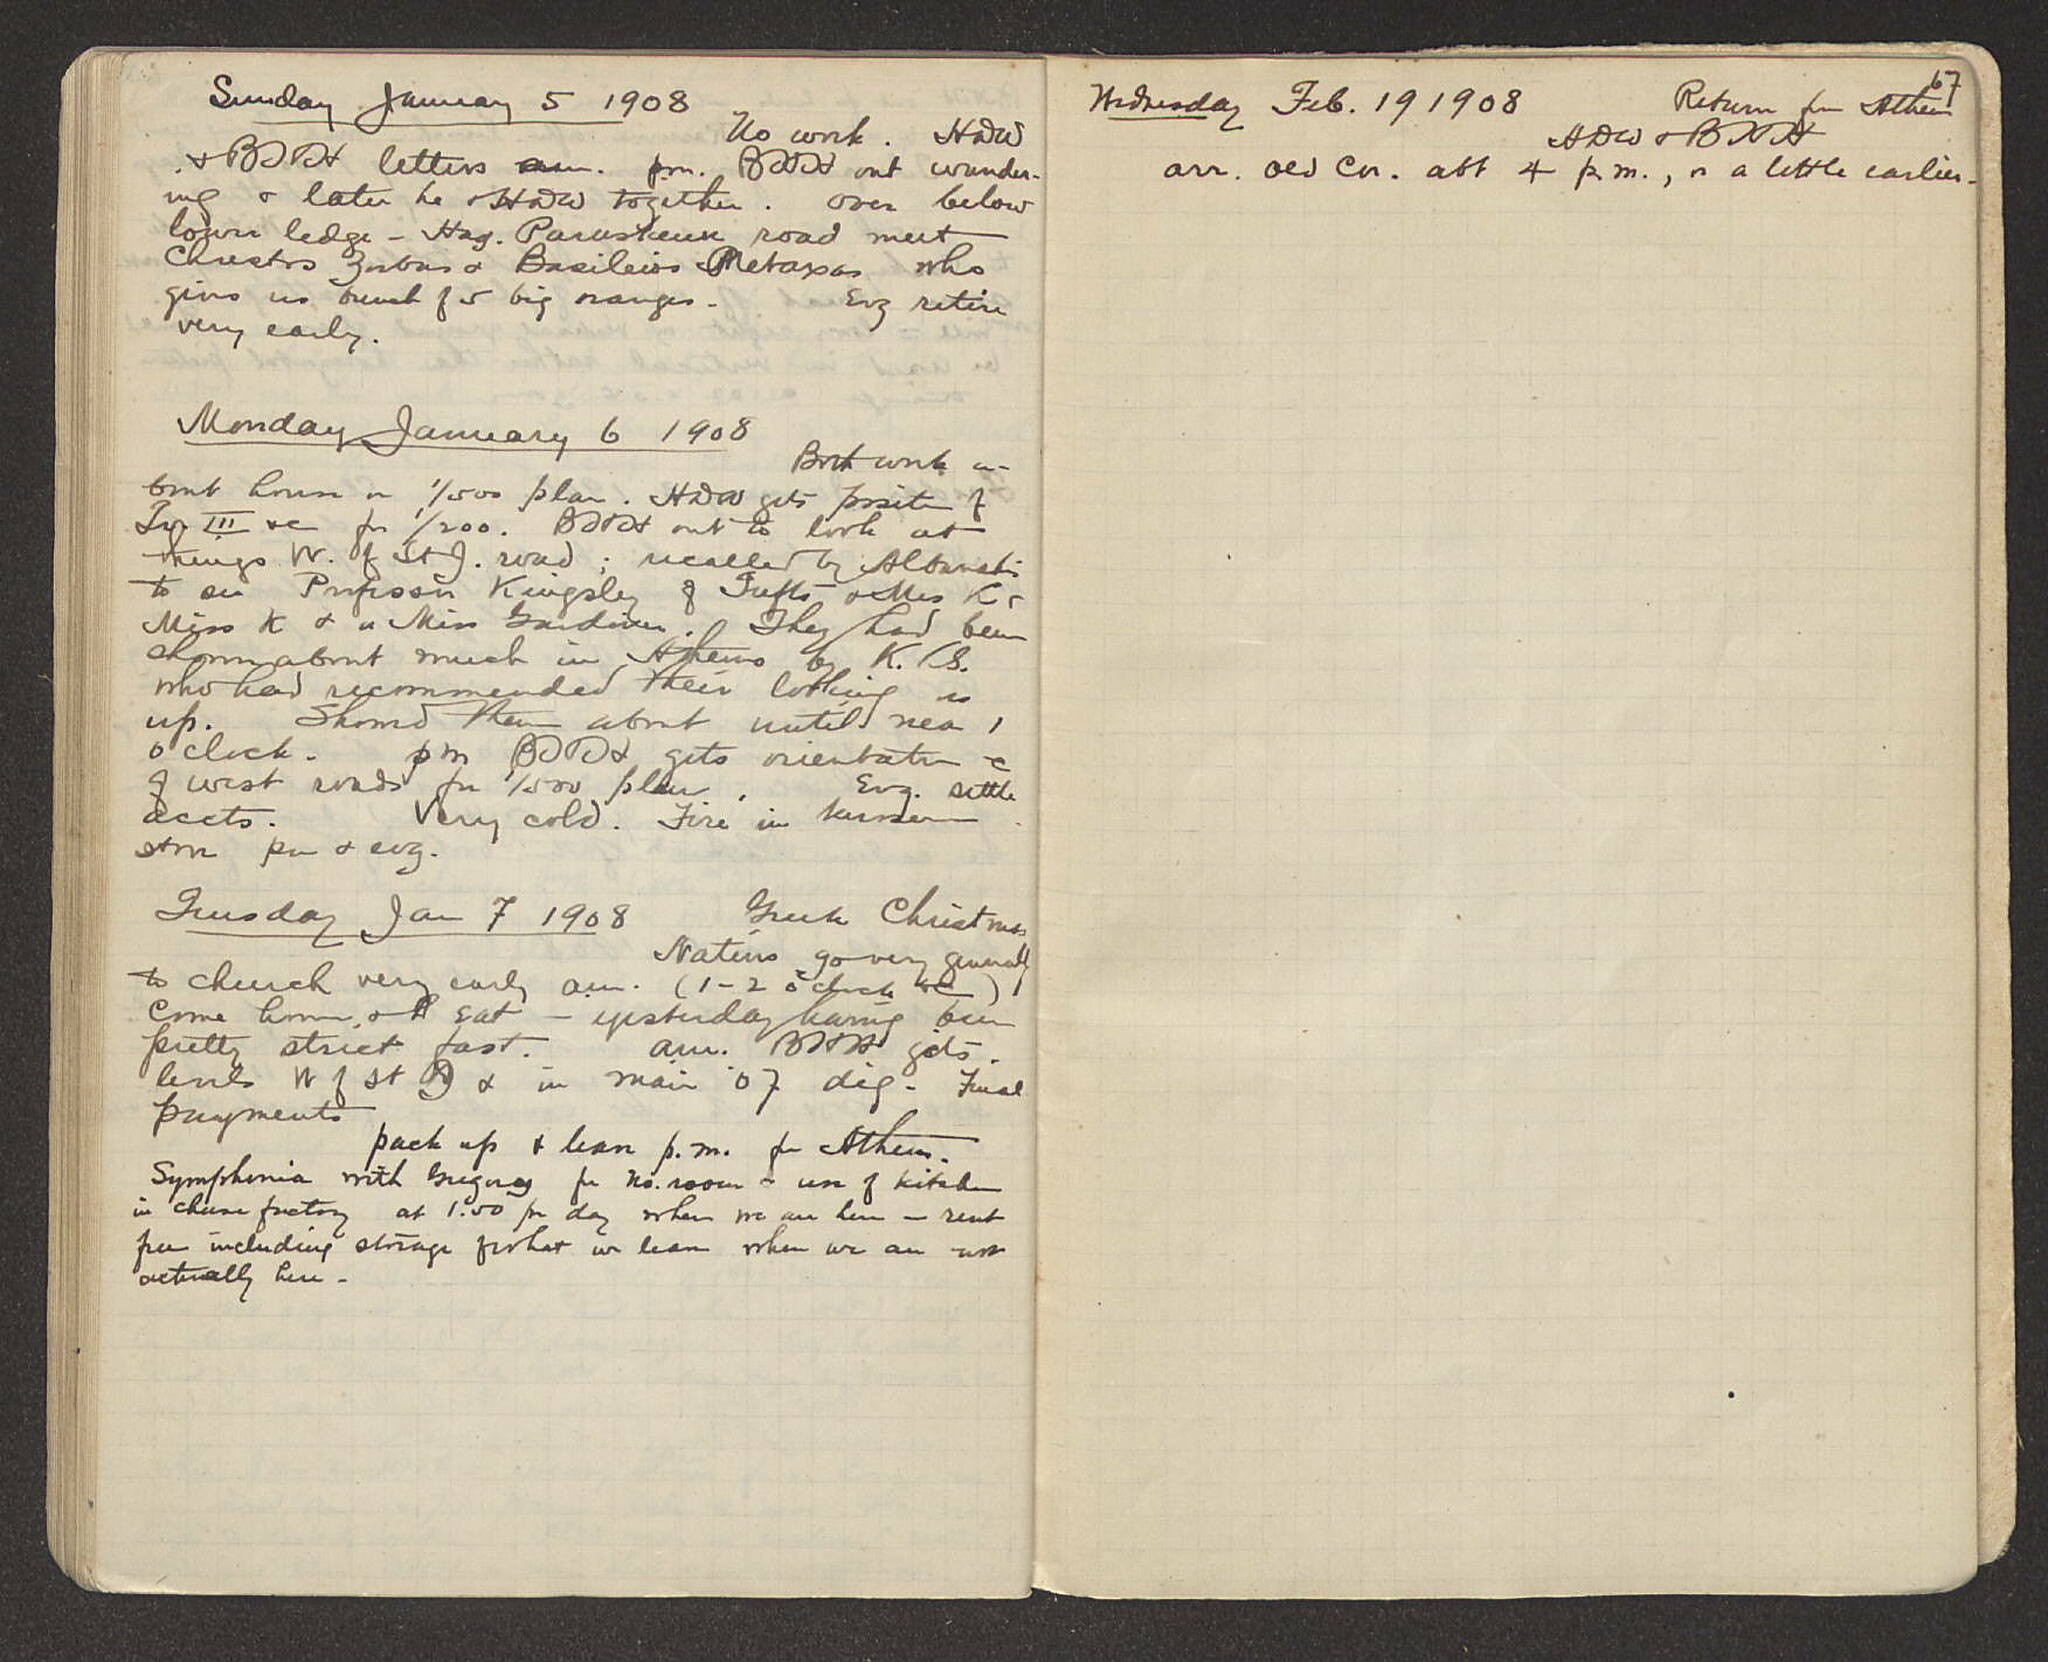 Sunday January 5 1908
No work. HDW
& BHH letters am. pm. BHH out wander-
ing & later he & HDW together. over below
lower ledge - Hag. Paraskeue road meet
Christos Zorbas & Basileios Metaxas who
gives us bunch of 5 big oranges. Evg retire
very early.
Monday January 6 1908
Both work a-
bout house on 1/500 plan. HDW gets position of
Tr III &c for 1/200. BHH out to look at
things W. of St J. road; recalled by
to see Professor Kingsley of Tufts & Mrs K &
Miss K & a Miss Gardiner. They had been
shown about much in Athens by K. S.
who had recommended their looking us
up. Showed them about until near 1
o'clock. pm BHH gets orientation &c
of west roads for 1/500 plan. Evg. settle
accts. Very cold. Fire in kerosene
stove pm & evg.
Tuesday Jan 7 1908 Greek Christmas
Natives go very generally
to church very early am. (1-2 o'clock &c)
come home, & eat - yesterday having been
pretty strict fast. am. BHH gets
levels W of St J & in main '07 dig. Final
payments
pack up & leave p.m. for Athens.
Symphonia with Gregoras for No. room & use of kitchen
in cheese factory at 1.50 per day when we are here - rent
free including storage of what we leave when we are not
actually here -
67
Wednesday Feb. 19 1908 Return fm Athens
HDW & BHH
arr. Old Cor. abt 4 p.m., or a little earlier.